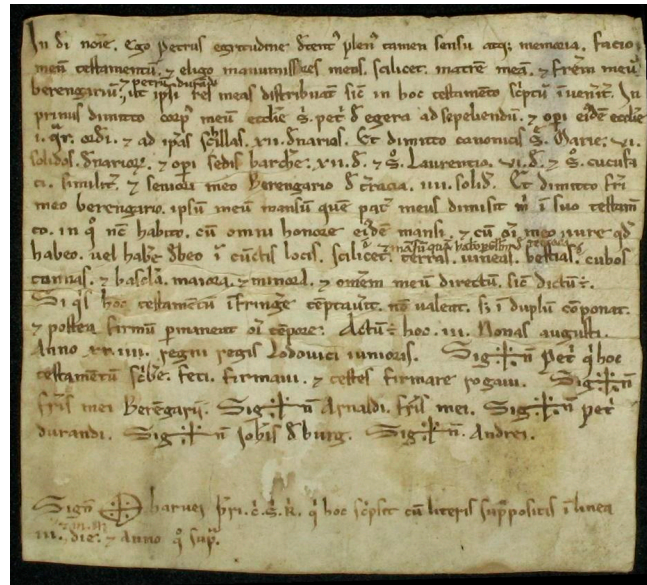 In di noie. Ego Petrus egritudine detent' plen' tamen sensu atq; memoria. facio
meu testamentu. & eligo manumissores meos. scilicet. matre mea. & frem meu
& petru durandi
berengariu. ut ipsi res meas distribuant sic in hoc testamento scptu invenerit. In
primus dimitto corp' meu ecclie s. petri d egera ad sepeliendu. & opi eide ecclie
ordi. & ad ipsas xii. dnarios. Et dimitto canonice S. Marie. vi.
solidos dnarior. & opi sedis barchn. xii. d. & S. Laurentio. vi. d. & S. cucufa
ti. similit. & seniori meo Berengario d iiii. solid. Et dimitto fri
meo berengario. ipsu meu mansu que pat meus dimisit m i suo testam
to. in q nc habito. cu omni honore eide mansi. & cu oi meo iure qd
habeo. vel habe dbeo i cunctis locis. scilicet terras. vineas. bestias. cubos
tonnas. & bascla. maiora. & minora. & omem meu directu. sic dictu e.
Si qs hoc testamentu ifringe teptaverit. no valeat. s; i duplu coponat.
& postea firmu pmaneat oi tepore. Actu e hoc. iii. Nonas augusti.
Anno xx. iiii. regni regis Lodovici iunioris. Sig+n Pet q hoc
testametu scbe feci. firmavi. & testes firmare rogavi. Sig+n
fris mei Berengarii. Sig+n Arnaldi. fris mei. Sig+n pet
durandi. Sig+n Johis d burg. Sig+n. Andrei.
Sign + pri. q hoc scpsit cu literis suppositis i linea
iii. die. & anno q sup.